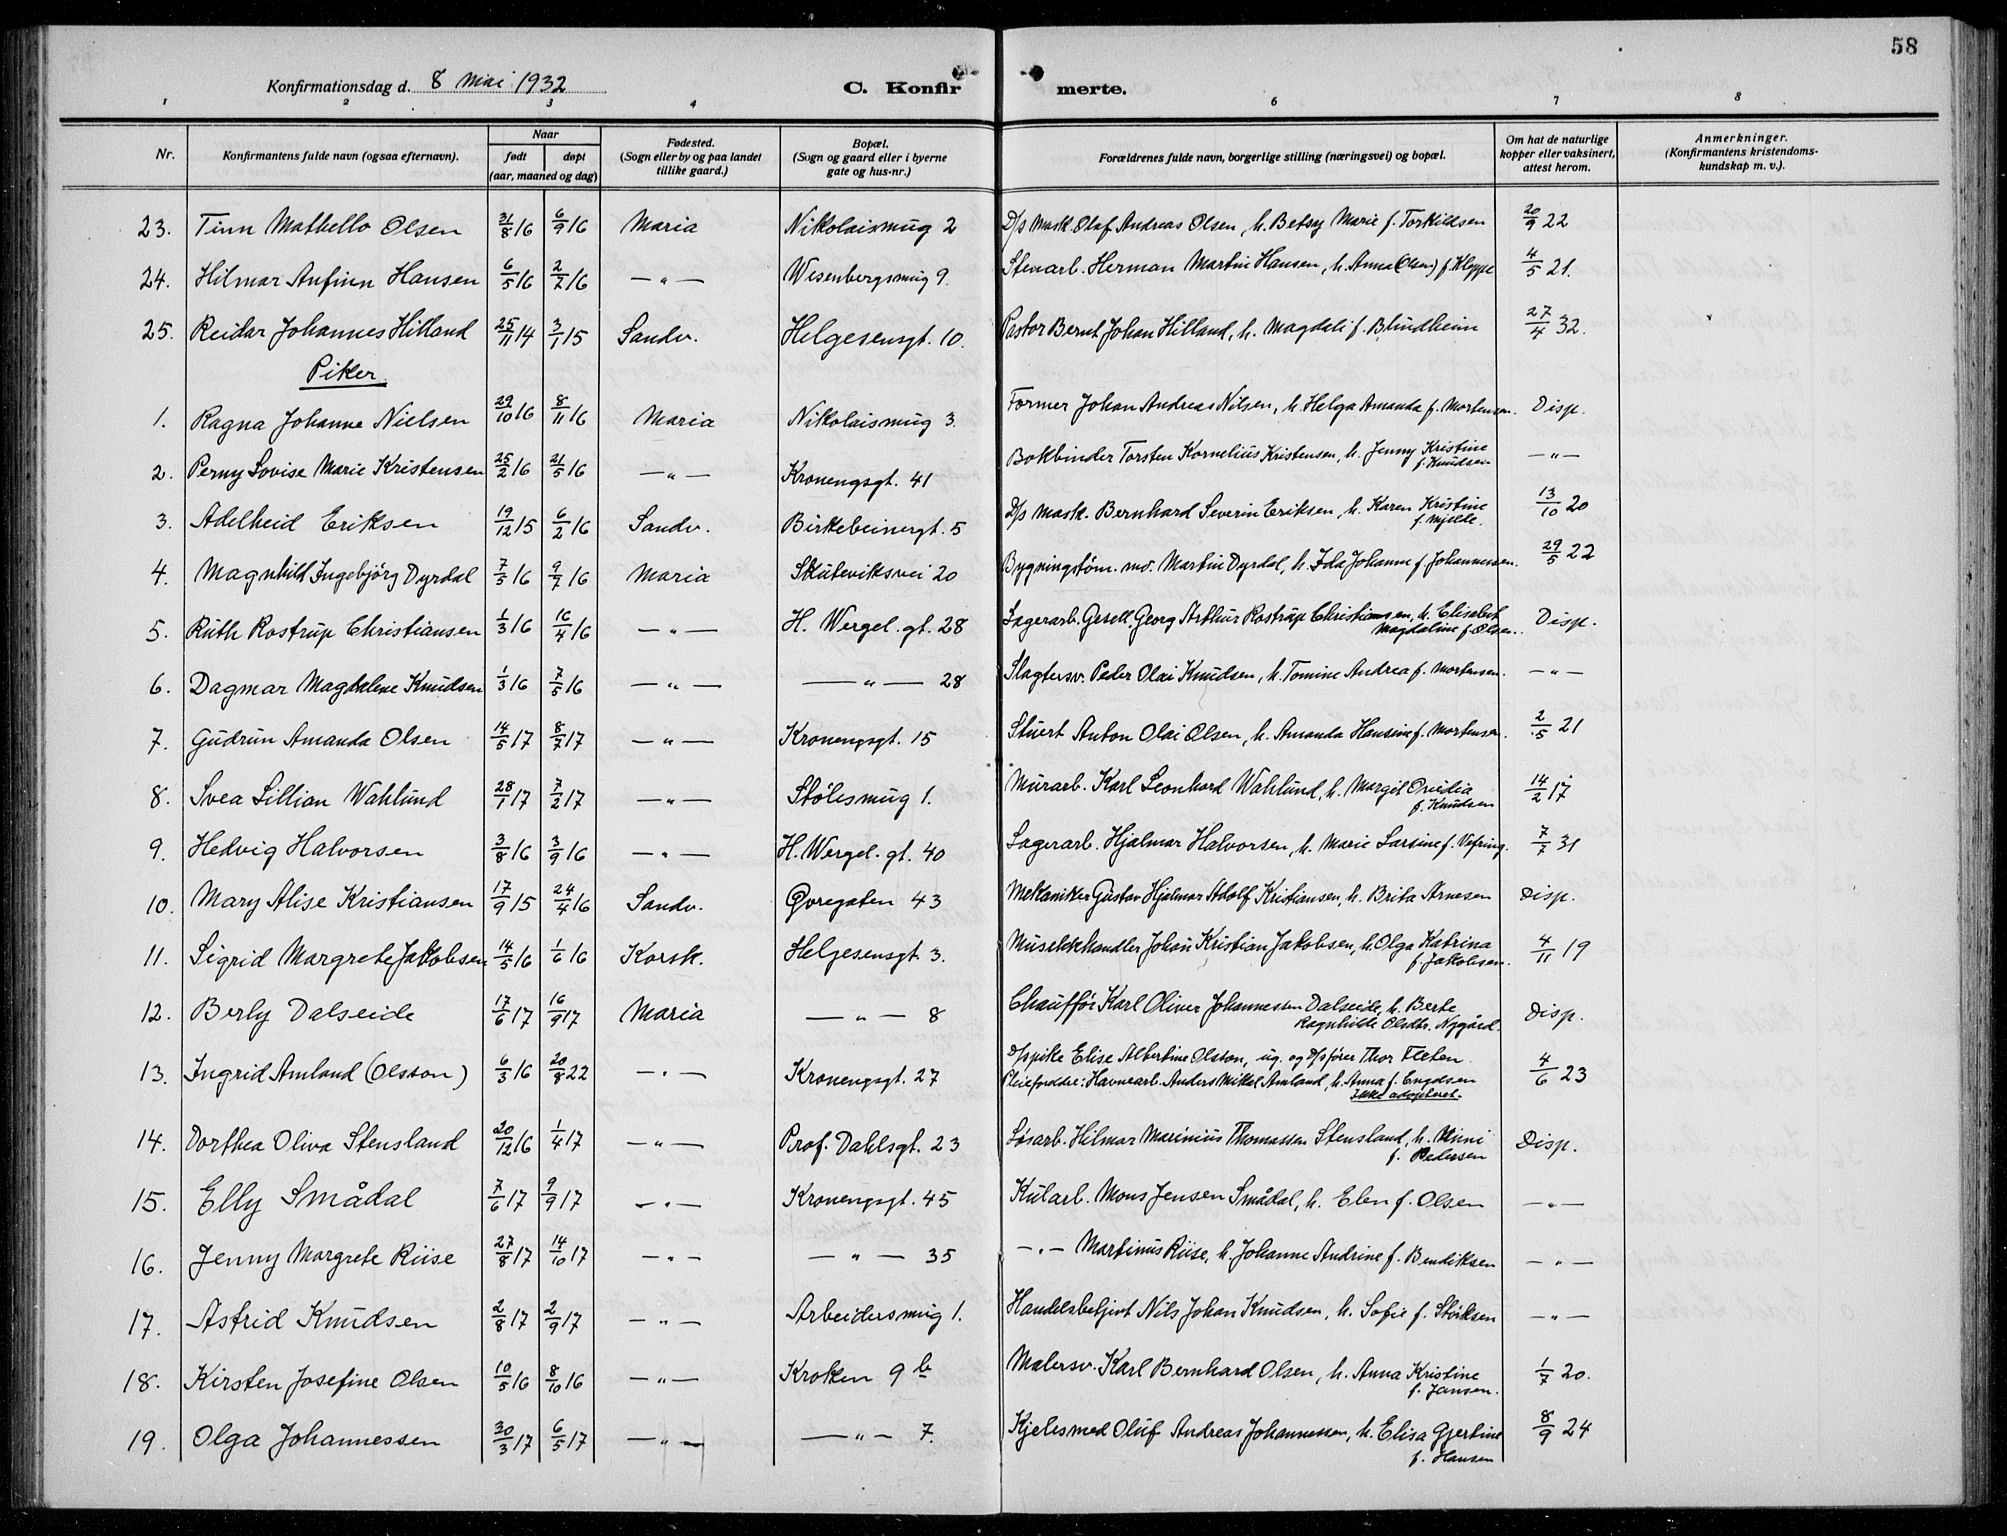 58
Konfirmationsdag d. 8 Mai 1932 C. Konfir merte.
1 2 3 4 5 6 7 8
Nr. Konfirmantens fulde navn (ogsaa efternavn). Naar født døpt (aar, maaned og dag) Fødested. (Sogn eller by og paa landet tillike gaard.) Bopæl. (Sogn og gaard eller i byerne gate og hus-nr.) Forældrenes fulde navn, borgerlige stilling (næringsvei) og bopæl. Om hat de naturlige kopper eller vaksinert, attest herom. Anmerkninger. (Konfirmantens kristendoms-kundskap m. v.).
23. Tinn Mathello Olsen 31/8 16 6/9 16 Maria Nikolaismug 2 D/s Mask. Olaf Andreas Olsen, h. Betsy Marie f. Torkildsen 20/9 22
24. Hilmar Anfinn Hansen 6/5 16 2/7 16 —"— Wesenbergsmug 9. Stenarb. Herman Martin Hansen, h. Anna (Olsen) f. Kleppe 4/5 21.
25. Reidar Johannes Hilland 25/11 14 3/1 15 Sandv. Helgesensgt. 10. Pastor Bernt Johan Hilland, h. Magdali f. Blindheim 27/4 32.
Piker.
1. Ragna Johanne Nielsen 29/10 16 8/11 16 Maria Nikolaismug 3. Former Johan Andreas Nilsen, h. Helga Amanda f. Mortensen. Disp.
2. Perny Lovise Marie Kristensen 25/2 16 21/5 16 —"— Kronengsgt. 41 Bokbinder Torsten Kornelius Kristensen, h. Jenny Kristine f. Knudsen —"—
3. Adelheid Eriksen 19/12 15 6/2 16 Sandv. Birkebeinergt. 5 D/s mask. Bernhard Severin Eriksen, h. Karen Kristine f. Mjelde. 13/10 20
4. Magnhild Ingebjörg Dyrdal 7/5 16 9/7 16 Maria Skuteviksvei 20 Bygningstøm. mo. Martin Dyrdal, h. Ida Johanne f. Johannessen. 29/5 22
5. Ruth Rostrup Christiansen 1/3 16 16/4 16 —"— H. Wergel. gt. 28 Lagerarb. Gesell Georg Arthur Rostrup Christiansen, h. Elisabet Magdaline f. Olsen. Disp.
6. Dagmar Magdalene Knudsen 1/3 16 7/5 16 —"— —"— 28 Slagtersv. Peder Olai Knudsen, h. Tomine Andrea f. Mortensen. —"—
7. Gudrun Amanda Olsen 14/5 17 8/7 17 —"— Kronengsgt. 15 Stuert Anton Olai Olsen, h. Amanda Hansine f. Mortensen. 2/5 21
8. Svea Lillian Wahlund 28/1 17 7/2 17 —"— Stølesmug 1. Murarb. Karl Leonhard Wahlund, h. Margit Ovidia f. Knudsen 14/2 17
9. Hedvig Halvorsen 3/8 16 3/9 16 —"— H. Wergel. gt. 40 Lagerarb. Hjalmar Halvorsen, h. Marie Larsine f. Vefring. 7/7 31
10. Mary Alise Kristiansen 17/9 15 24/4 16 Sandv. Øvregaten 43 Mekaniker Gustav Hjalmar Adolf Kristiansen, h. Brita Arnesen Disp.
11. Sigrid Margrete Jakobsen 14/5 16 1/6 16 Korsk. Helgesensgt. 3. Musikkhandler Johan Kristian Jakobsen, h. Olga Katrina f. Jakobsen. 4/11 19
12. Berly Dalseide 17/6 17 16/9 17 Maria —"— 8 Chauffør Karl Oliver Johannessen Dalseide, h. Berte Ragnhilde Olsdtr. Nygård. Disp.
13. Ingrid Amland (Olsson) 6/3 16 20/8 22 —"— Kronengsgt. 27 D/spike Elise Albertine Olsson, ug. og D/sfører Thor Fleten. Pleieforeldre: Havnearb. Anders Mikal Amland, h. Anna f. Engdsen Ikke adopteret. 4/6 23
14. Dorthea Oliva Stensland 20/12 16 1/4 17 —"— Prof. Dahlsgt. 23 Løsarb. Hilmar Marinius Thomassen Stensland, h. Minni f. Pedersen Disp.
15. Elly Smådal 7/6 17 9/9 17 —"— Kronengsgt. 45 Kularb. Mons Jensen Smådal, h. Elen f. Olsen —"—
16. Jenny Margrete Riise 27/8 17 14/10 17 —"— —"— 35 —"— Martinus Riise, h. Johanne Andrine f. Bendiksen —"—
17. Astrid Knudsen 2/8 17 2/9 17 —"— Arbeidersmug 1. Handelsbetjent Nils Johan Knudsen, h. Sofie f. Størksen —"—
18. Kirsten Josefine Olsen 10/5 16 8/10 16 —"— Kroken 9 b Malersv. Karl Bernhard Olsen, h. Anna Kristine f. Jansen. 1/7 20.
19. Olga Johannessen 30/3 17 6/5 17 —"— —"— 7. Kjelesmed Oluf Andreas Johannessen, h. Elisa Gjertine f. Hansen 8/9 24